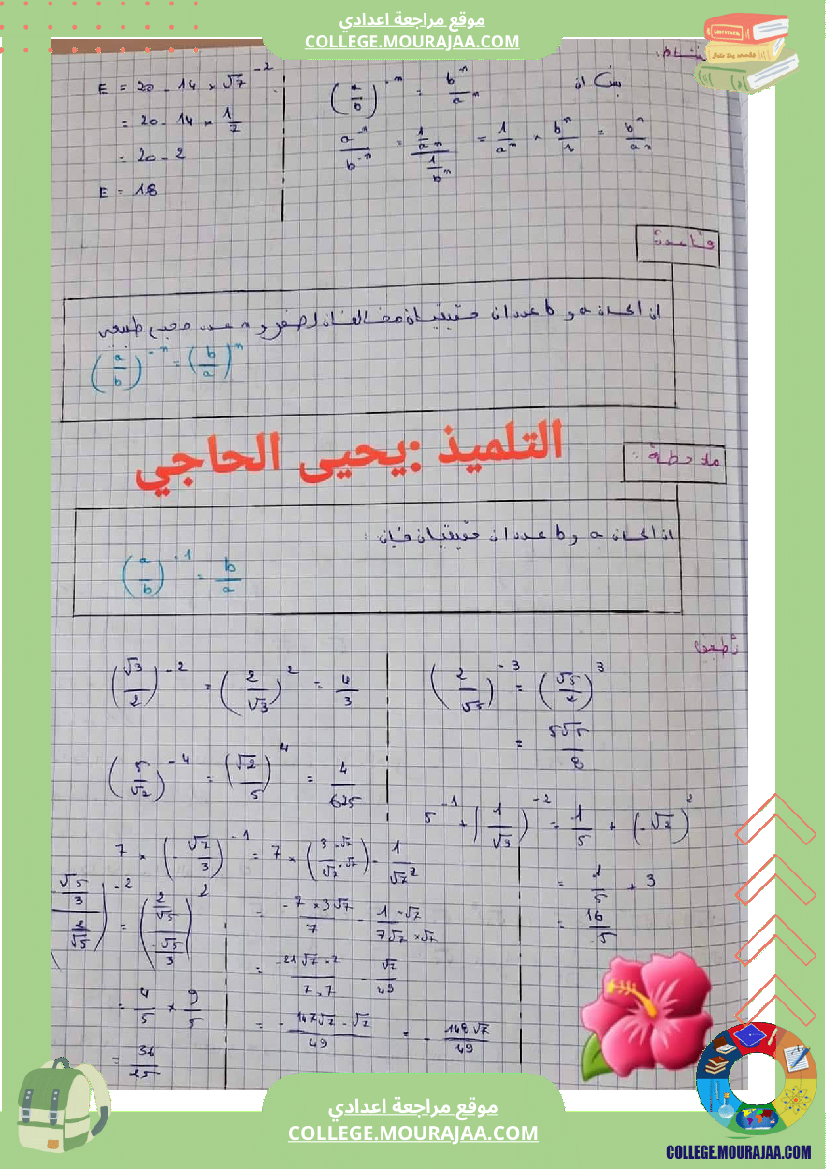 موقع مراجعة اعدادي
COLLEGE.MOURAJAA.COM
نشاط:
بين ان (a/b)^-n = b^n/a^n
a^-n/b^-n = (1/a^n)/(1/b^n) = 1/a^n × b^n/1 = b^n/a^n
E = 20 - 14 × √7^-2
= 20 - 14 × 1/7
= 20 - 2
E = 18
قاعدة
اذا كان a و b عددان حقيقيان مخالفان لصفر و n عدد صحيح طبيعي
(a/b)^-n = (b/a)^n
التلميذ :يحيى الحاجي
ملاحظة:
اذا كان a و b عددان حقيقيان فإن:
(a/b)^-1 = b/a
تطبيق
(2/√5)^-3 = (√5/2)^3
= 5√5/8
(√3/2)^-2 = (2/√3)^2 = 4/3
(5/√2)^-4 = (√2/5)^4 = 4/625
5^-1 + (1/√3)^-2 = 1/5 + (-√2)^2
= 1/5 + 3
= 16/5
7 × (-√7/3)^-1 = 7 × (3×√7/√7×√7) - 1/√7^2
= -7×3√7/7 - 1×√7/7√7×√7
= -21√7×7/7×7 - √7/49
= -147√7-√7/49 = -148√7/49
((√5/3)/(2/√5))^-2 = ((2/√5)/(√5/3))^2
= 4/5 × 9/5
= 36/25
موقع مراجعة اعدادي
COLLEGE.MOURAJAA.COM
COLLEGE.MOURAJAA.COM